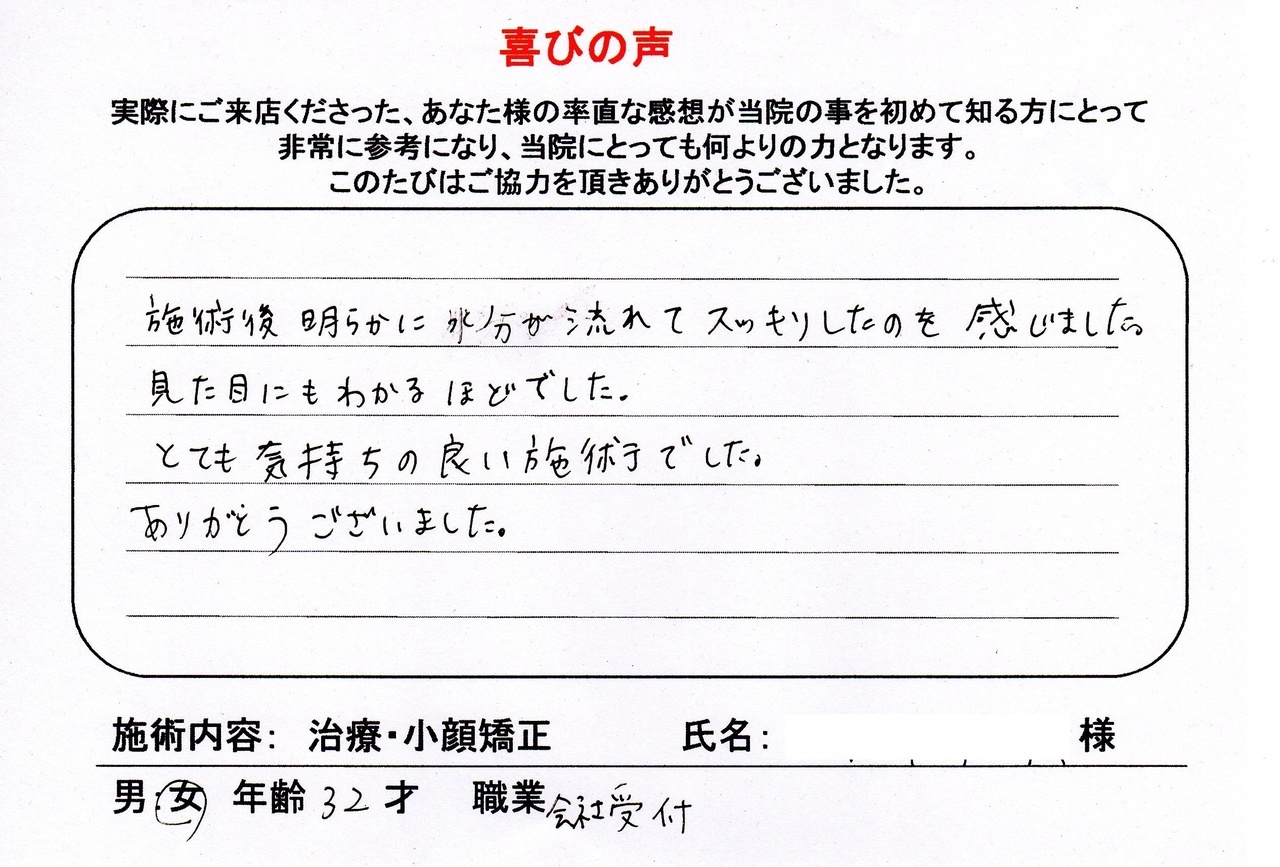 喜びの声
実際にご来店くださった、あなた様の率直な感想が当院の事を初めて知る方にとって
非常に参考になり、当院にとっても何よりの力となります。
このたびはご協力を頂きありがとうございました。
施術後 明らかに 水分が 流れて スッキリしたのを 感じました。
見た目にもわかるほどでした。
とても気持ちの良い施術でした。
ありがとうございました。
施術内容： 治療・小顔矯正 氏名： 様
男・女 年齢 32 才 職業 会社受付